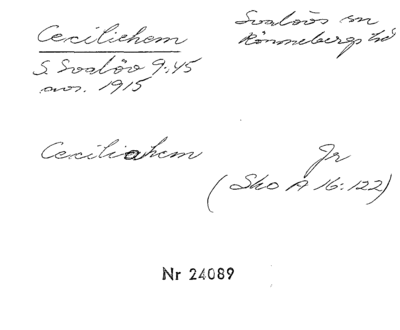 Ceciliehem
Svalövs sn
Rönnebergs hd
S. Svalöv 9:45
avs. 1915
Ceciliahem
Jr
(Sko A 16:122)
Nr 24089